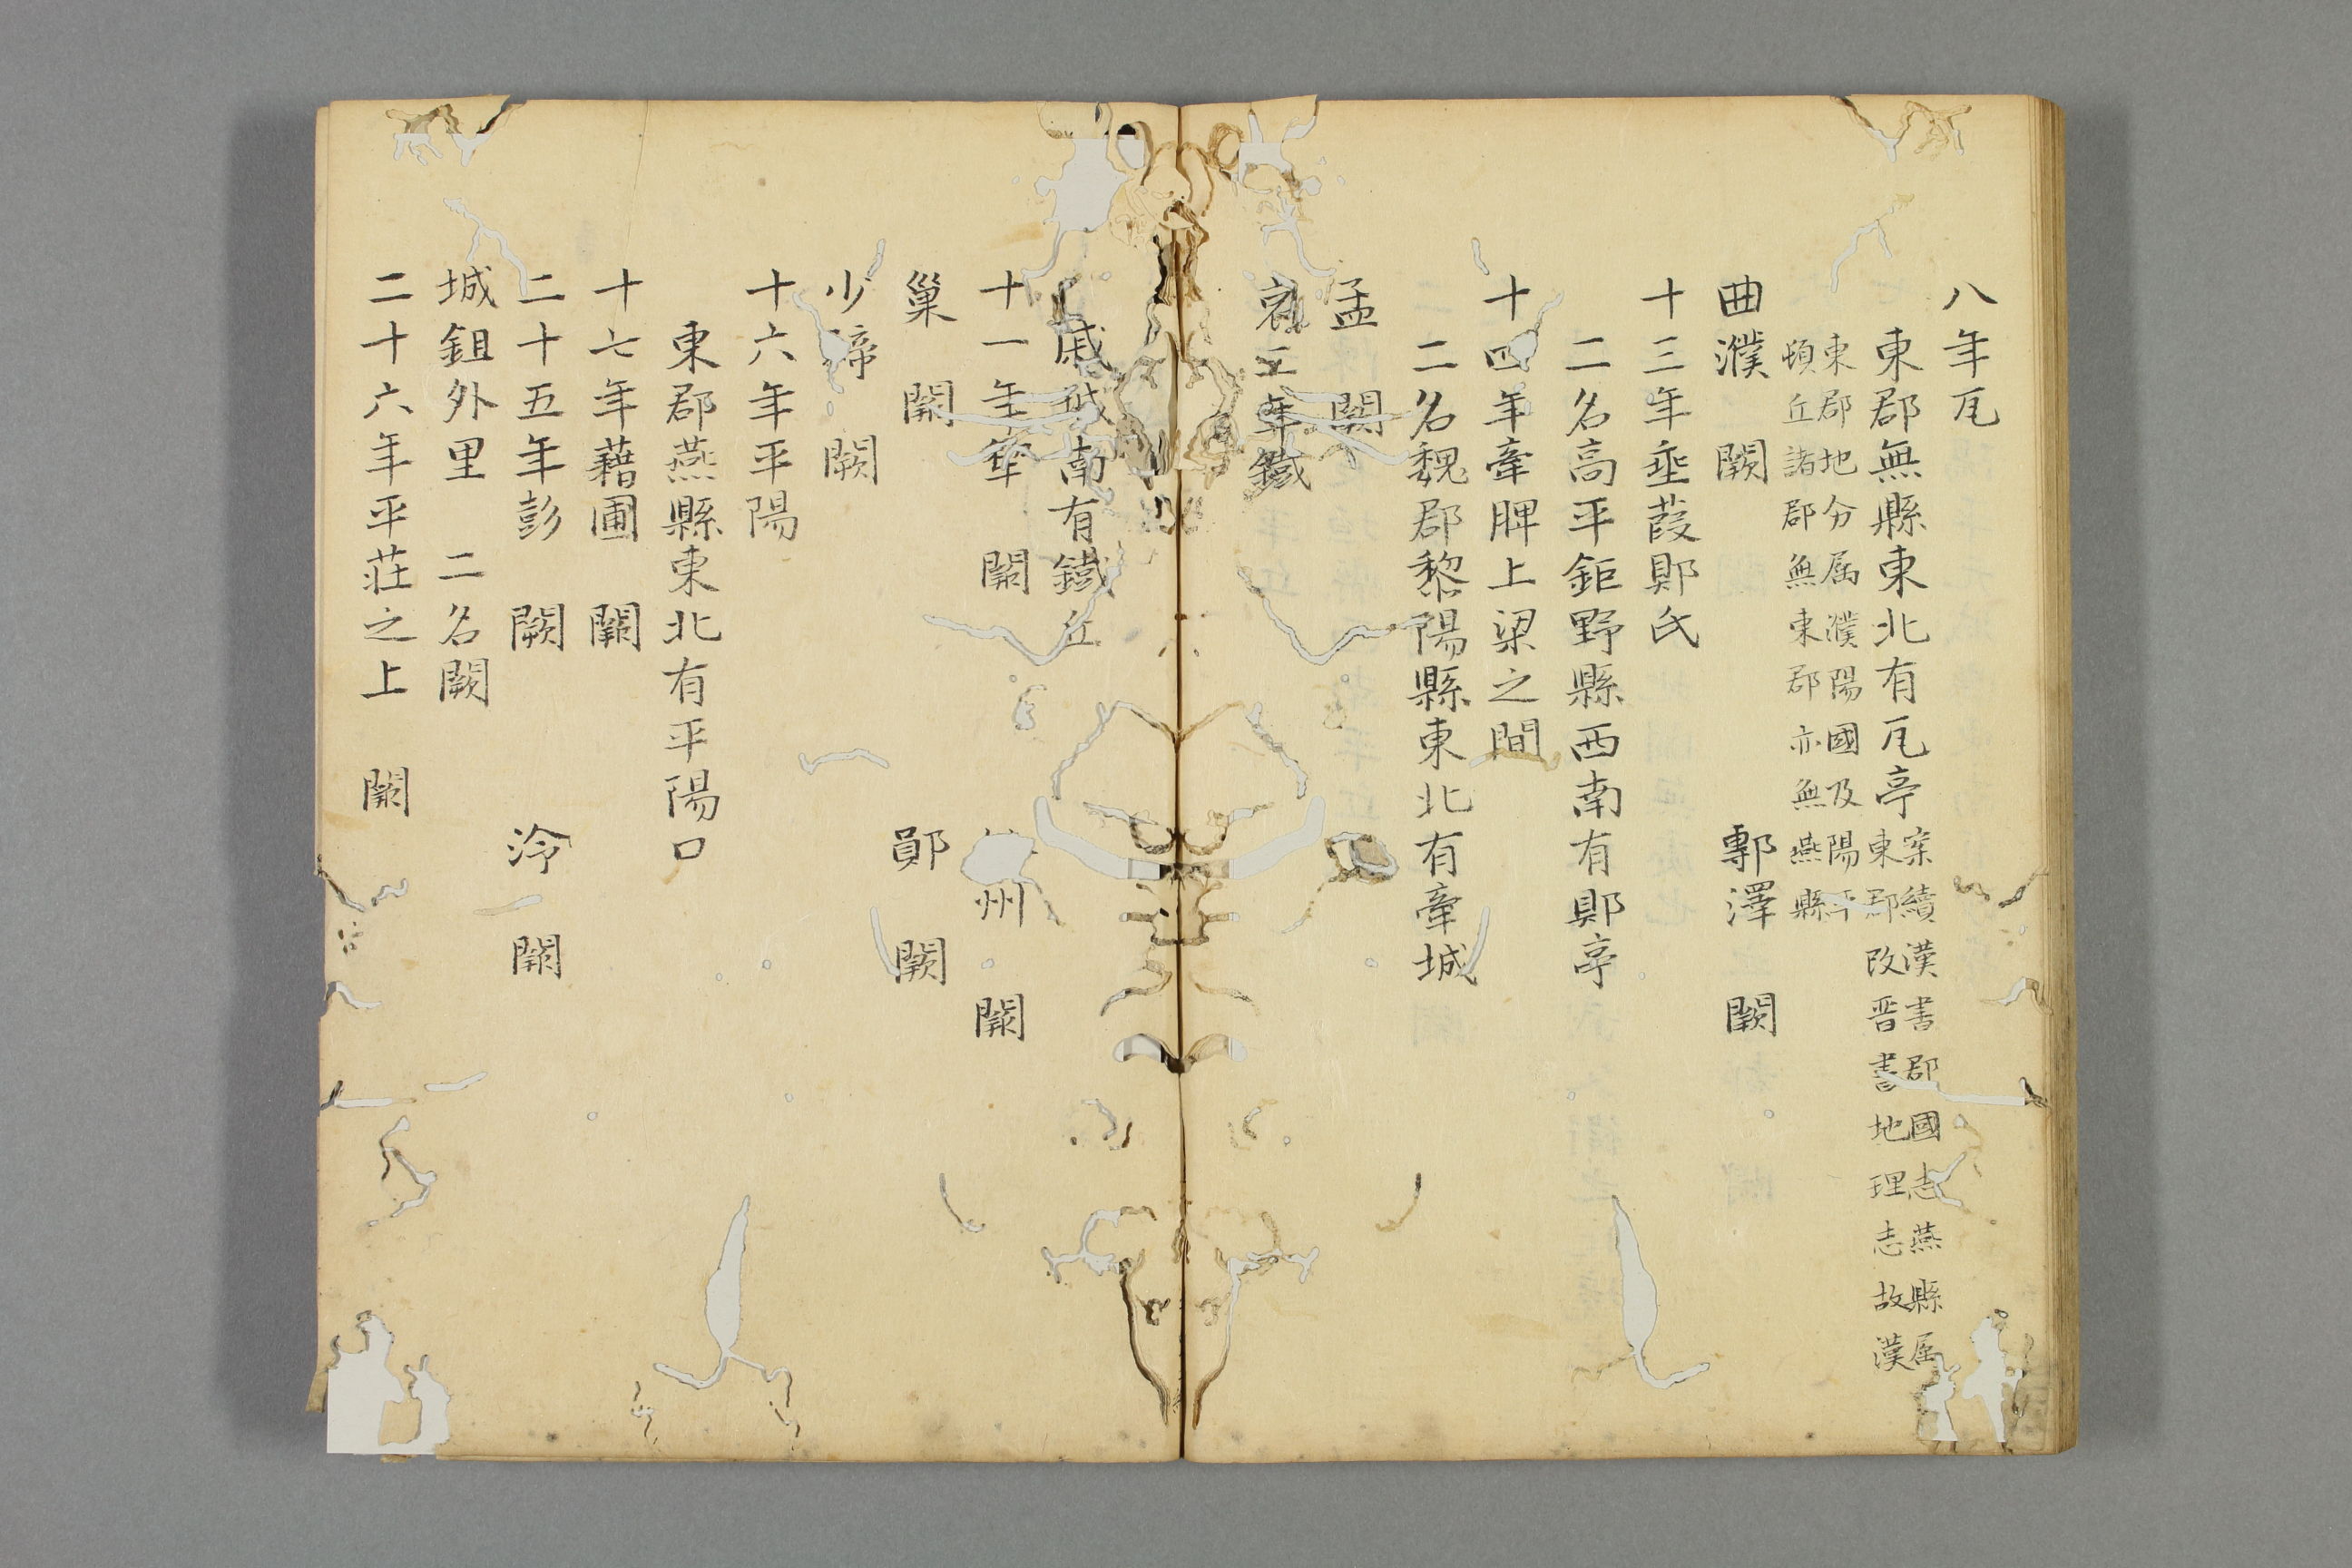 八年瓦
東郡無縣東北有瓦亭案續漢書郡國志燕縣屬
東郡改晋書地理志故漢
東郡地分属濮陽國及陽平
頓丘諸郡無東郡亦無燕縣
曲濮 闕 鄟澤 闕
十三年垂葭郹氏
二名高平鉅野縣西南有郹亭
十四年牽脾上梁之間
二名魏郡黎陽縣東北有牽城
孟 闕
哀二年鐵
戚城南有鐵丘
十一年犂 闕 州 闕
巢 闕 鄖 闕
少禘 闕
十六年平陽
東郡燕縣東北有平陽口
十七年藉圃 闕
二十五年彭 闕 泠 闕
城鉏外里 二名闕
二十六年平莊之上 闕